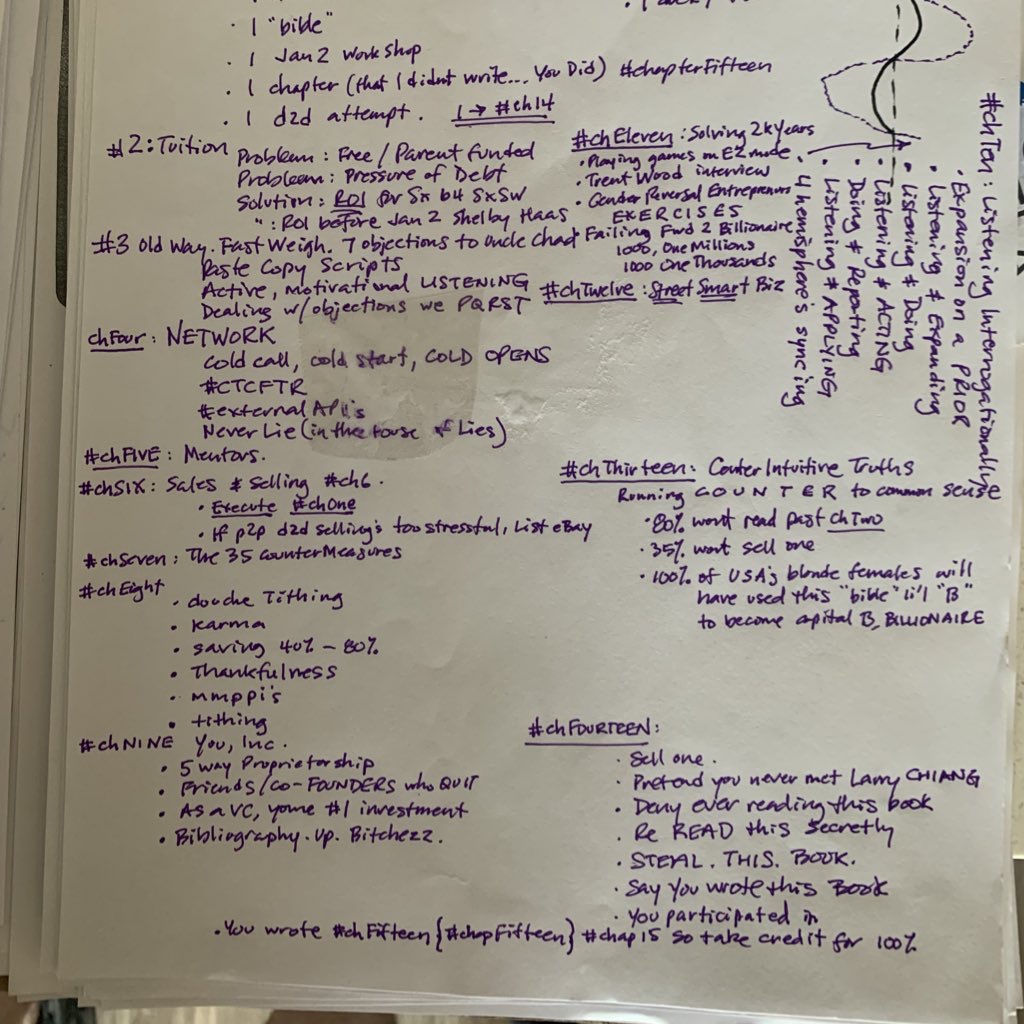 · 1 "bible"
· 1 Jan 2 workshop
· 1 chapter (that I didnt write... You Did) #chapterFifteen
· 1 d2d attempt. 1 → #ch14
#2: Tuition
Problem: Free / Parent funded
Problem: Pressure of Debt
Solution: ROI @ 5x b4 SxSw
" : ROI before Jan 2 Shelby Haas
#3 Old Way. Fast Weigh. 7 objections to Uncle Chad
Paste Copy Scripts
Active, Motivational LISTENING
Dealing w/objections we PQRST
chFour: NETWORK
cold call, cold start, COLD OPENS
#CTCFTR
#external API's
Never Lie (in the House of Lies)
#chFIVE: Mentors.
#chSIX: Sales & Selling #ch6.
· Execute #chOne
· If p2p d2d selling's too stressful, List eBay
#chSeven: The 35 counterMeasures
#chEight
· douche Tithing
· Karma
· saving 40% - 80%
· Thankfulness
· mmppi's
· tithing
#chNINE You, Inc.
· 5 way Proprietorship
· Friends/co-FOUNDERS who QUIT
· As a VC, youre #1 investment
· Bibliography. Up. Bitchezz.
#chEleven: Solving 2k years
· Playing games on EZ mode
· Trent Wood interview
· Gender Reversal Entrepreneurs
EXERCISES
Failing Fwd 2 Billionaire
1000, One Millions
1000 One Thousands
#chTwelve: Street Smart Biz
#chTen: Listening Interrogationally
· Expansion on a PRIOR
· Listening & Expanding
· Listening & Doing
· Listening & ACTING
· Doing & Repeating
· Listening & APPLYING
· 4 hemisphere's syncing
#chThirteen: Counter Intuitive Truths
Running COUNTER to common sense
· 80% wont read past chTwo
· 35% wont sell one
· 100% of USA's blonde females will
have used this "bible" li'l "B"
to become capital B, BILLIONAIRE
#chFOURTEEN:
· Sell one.
· Pretend you never met Larry CHIANG
· Deny ever reading this book
· Re READ this secretly
· STEAL. THIS. BOOK.
· Say You wrote this Book
· You participated in
· You wrote #chFifteen {#chapFifteen} #chap15 so take credit for 100%